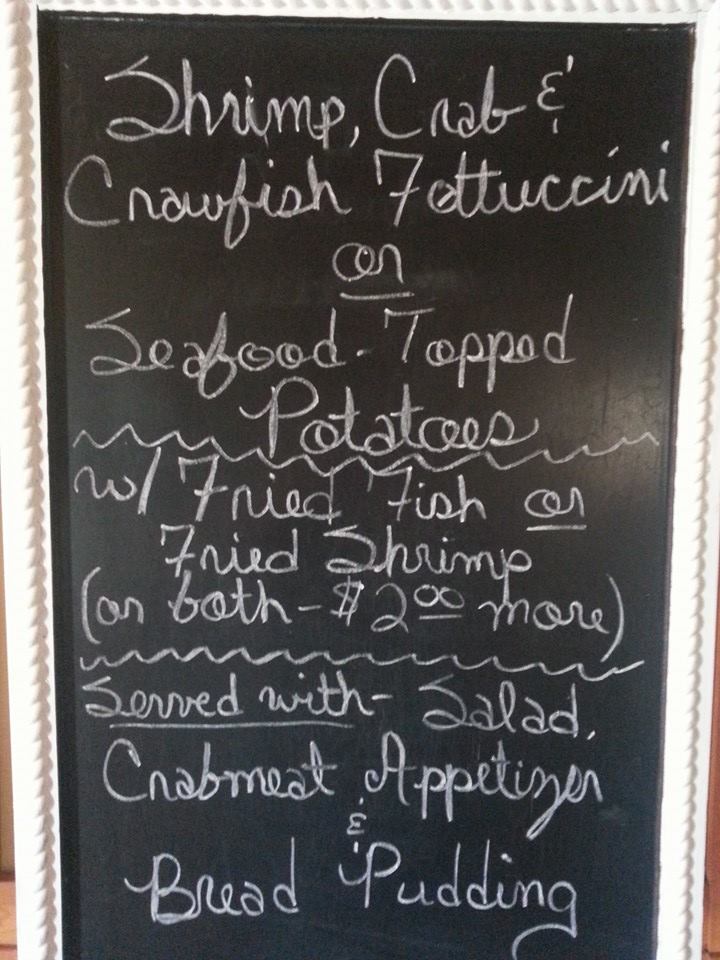 Shrimp, Crab &
Crawfish Fettuccini
or
Seafood-Topped
Potatoes
w/ Fried Fish or
Fried Shrimp
(or both - $2.00 more)
Served with - Salad,
Crabmeat Appetizer
&
Bread Pudding